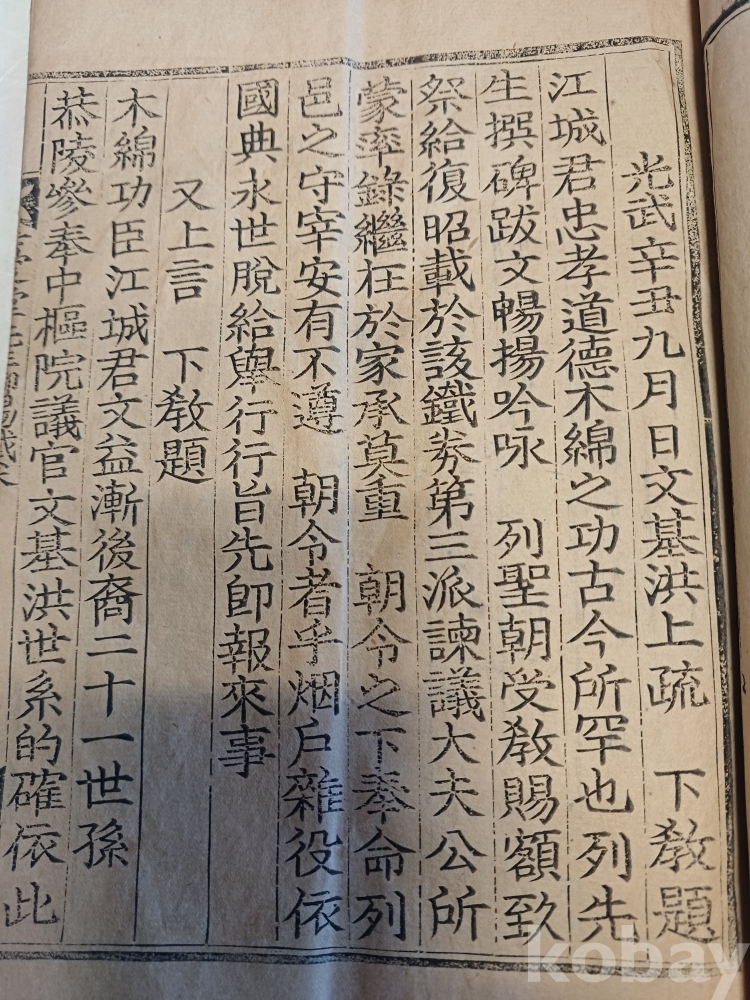 光武辛丑九月日文基洪上疏　下敎題
江城君忠孝道德木綿之功古今所罕也列先
生撰碑跋文暢揚吟咏　列聖朝受敎賜額致
祭給復昭載於該鐵券第三派諫議大夫公所
蒙率錄繼在於家承莫重　朝令之下奉命列
邑之守宰安有不遵　朝令者乎烟戶雜役依
國典永世脫給擧行行旨先卽報來事
又上言　下敎題
木綿功臣江城君文益漸後裔二十一世孫
恭陵參奉中樞院議官文基洪世系的確依此
kobay